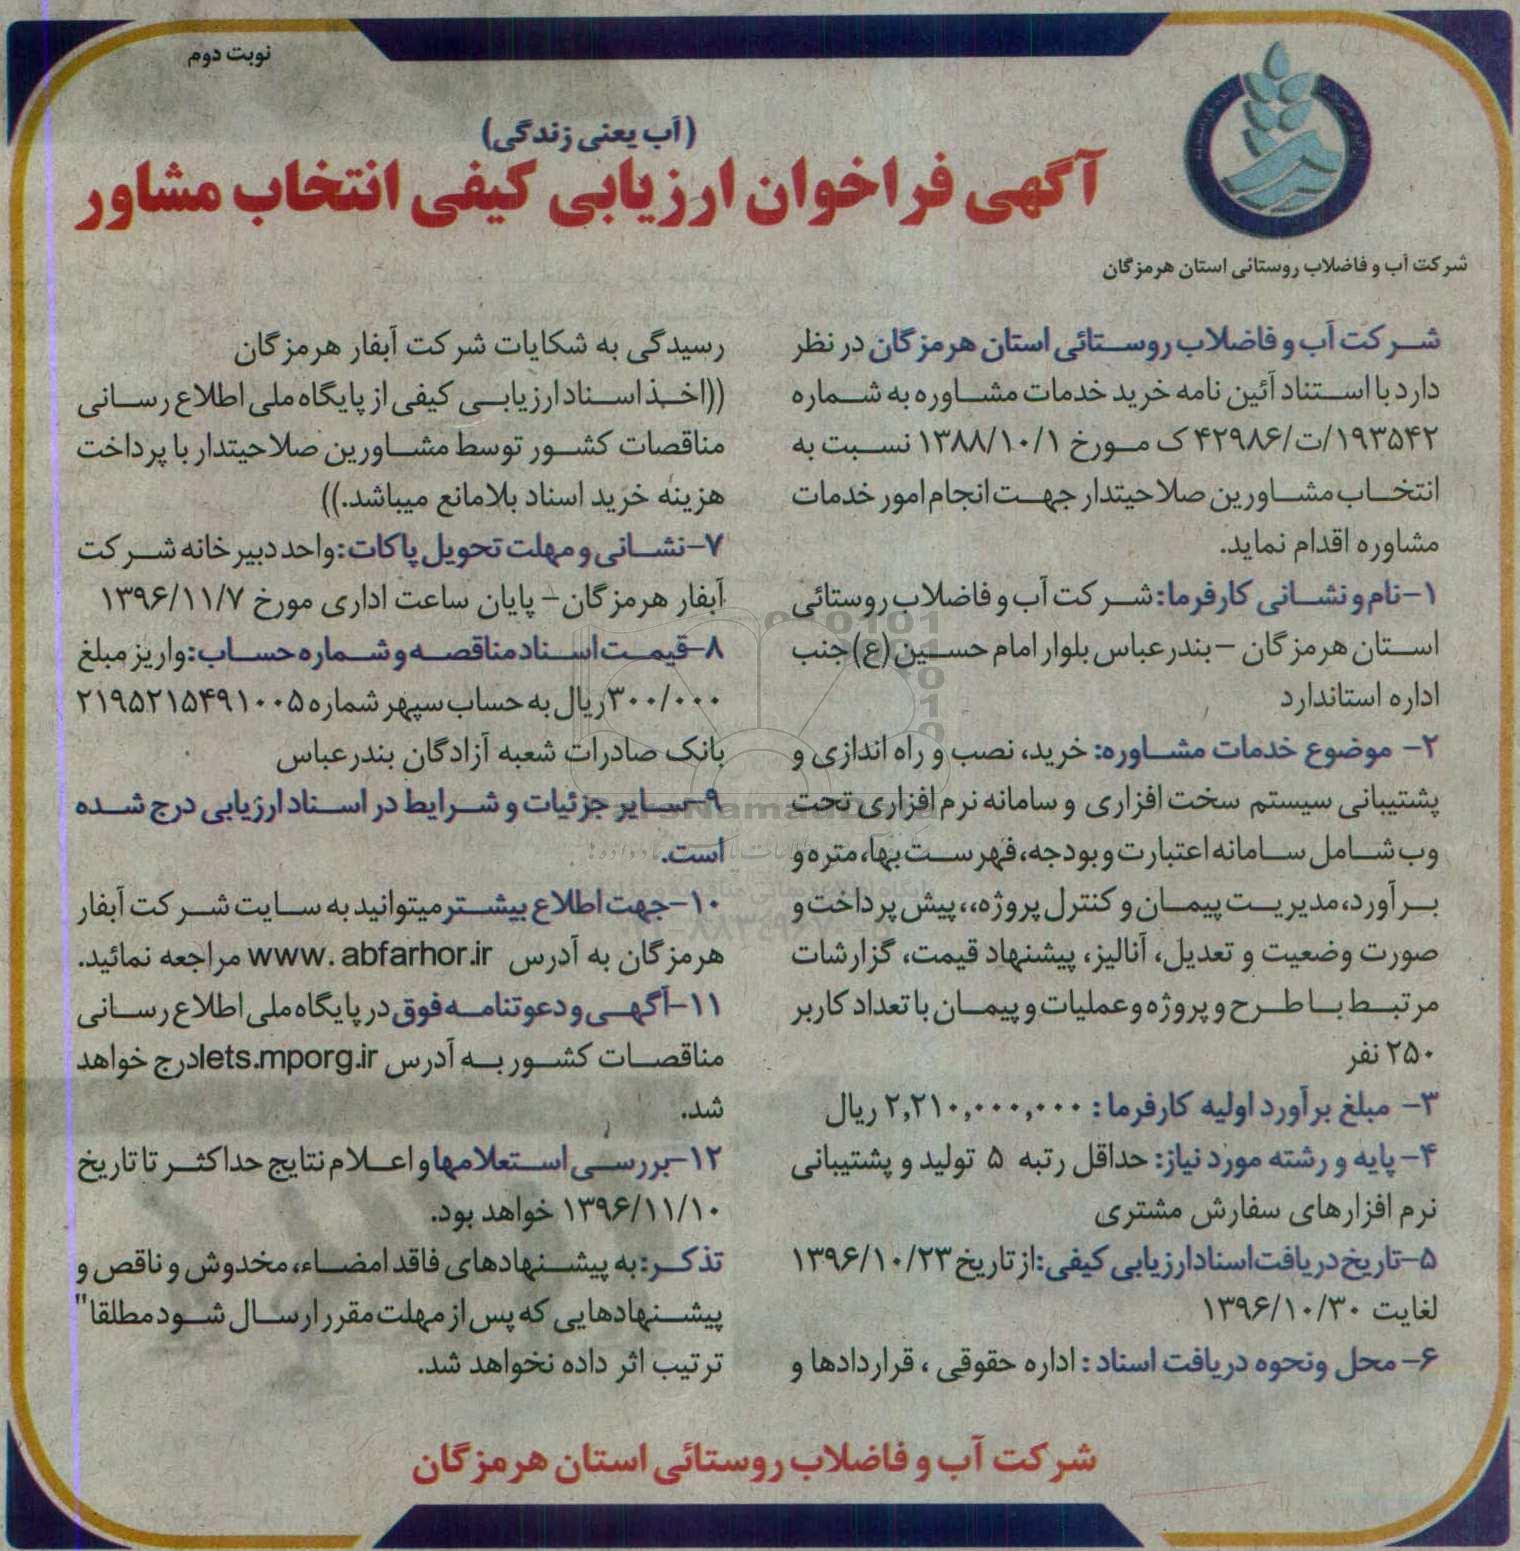 نوبت دوم
(آب یعنی زندگی)
آگهی فراخوان ارزیابی کیفی انتخاب مشاور
شرکت آب و فاضلاب روستائی استان هرمزگان
شرکت آب و فاضلاب روستائی استان هرمزگان در نظر
دارد با استناد آئین نامه خرید خدمات مشاوره به شماره
۱۹۳۵۴۲/ت/۴۲۹۸۶ ک مورخ ۱۳۸۸/۱۰/۱ نسبت به
انتخاب مشاورین صلاحیتدار جهت انجام امور خدمات
مشاوره اقدام نماید.
۱-نام و نشانی کارفرما: شرکت آب و فاضلاب روستائی
استان هرمزگان - بندرعباس بلوار امام حسین (ع) جنب
اداره استاندارد
۲- موضوع خدمات مشاوره: خرید، نصب و راه اندازی و
پشتیبانی سیستم سخت افزاری و سامانه نرم افزاری تحت
وب شامل سامانه اعتبارت و بودجه، فهرست بها، متره و
برآورد، مدیریت پیمان و کنترل پروژه،، پیش پرداخت و
صورت وضعیت و تعدیل، آنالیز، پیشنهاد قیمت، گزارشات
مرتبط با طرح و پروژه و عملیات و پیمان با تعداد کاربر
۲۵۰ نفر
۳- مبلغ برآورد اولیه کارفرما : ۲,۲۱۰,۰۰۰,۰۰۰ ریال
۴- پایه و رشته مورد نیاز: حداقل رتبه ۵ تولید و پشتیبانی
نرم افزارهای سفارش مشتری
۵-تاریخ دریافت اسناد ارزیابی کیفی: از تاریخ ۱۳۹۶/۱۰/۲۳
لغایت ۱۳۹۶/۱۰/۳۰
۶- محل ونحوه دریافت اسناد : اداره حقوقی ، قراردادها و
رسیدگی به شکایات شرکت آبفار هرمزگان
((اخذ اسناد ارزیابی کیفی از پایگاه ملی اطلاع رسانی
مناقصات کشور توسط مشاورین صلاحیتدار با پرداخت
هزینه خرید اسناد بلامانع میباشد.))
۷-نشانی و مهلت تحویل پاکات: واحد دبیرخانه شرکت
آبفار هرمزگان - پایان ساعت اداری مورخ ۱۳۹۶/۱۱/۷
۸-قیمت اسناد مناقصه و شماره حساب: واریز مبلغ
۳۰۰/۰۰۰ ریال به حساب سپهر شماره ۲۱۹۵۲۱۵۴۹۱۰۰۵
بانک صادرات شعبه آزادگان بندرعباس
۹-سایر جزئیات و شرایط در اسناد ارزیابی درج شده
است.
۱۰-جهت اطلاع بیشتر میتوانید به سایت شرکت آبفار
هرمزگان به آدرس www. abfarhor.ir مراجعه نمائید.
۱۱-آگهی و دعوتنامه فوق در پایگاه ملی اطلاع رسانی
مناقصات کشور به آدرس iets.mporg.ir درج خواهد
شد.
۱۲-بررسی استعلامها و اعلام نتایج حداکثر تا تاریخ
۱۳۹۶/۱۱/۱۰ خواهد بود.
تذکر: به پیشنهادهای فاقد امضاء، مخدوش و ناقص و
پیشنهادهایی که پس از مهلت مقرر ارسال شود مطلقا"
ترتیب اثر داده نخواهد شد.
شرکت آب و فاضلاب روستائی استان هرمزگان